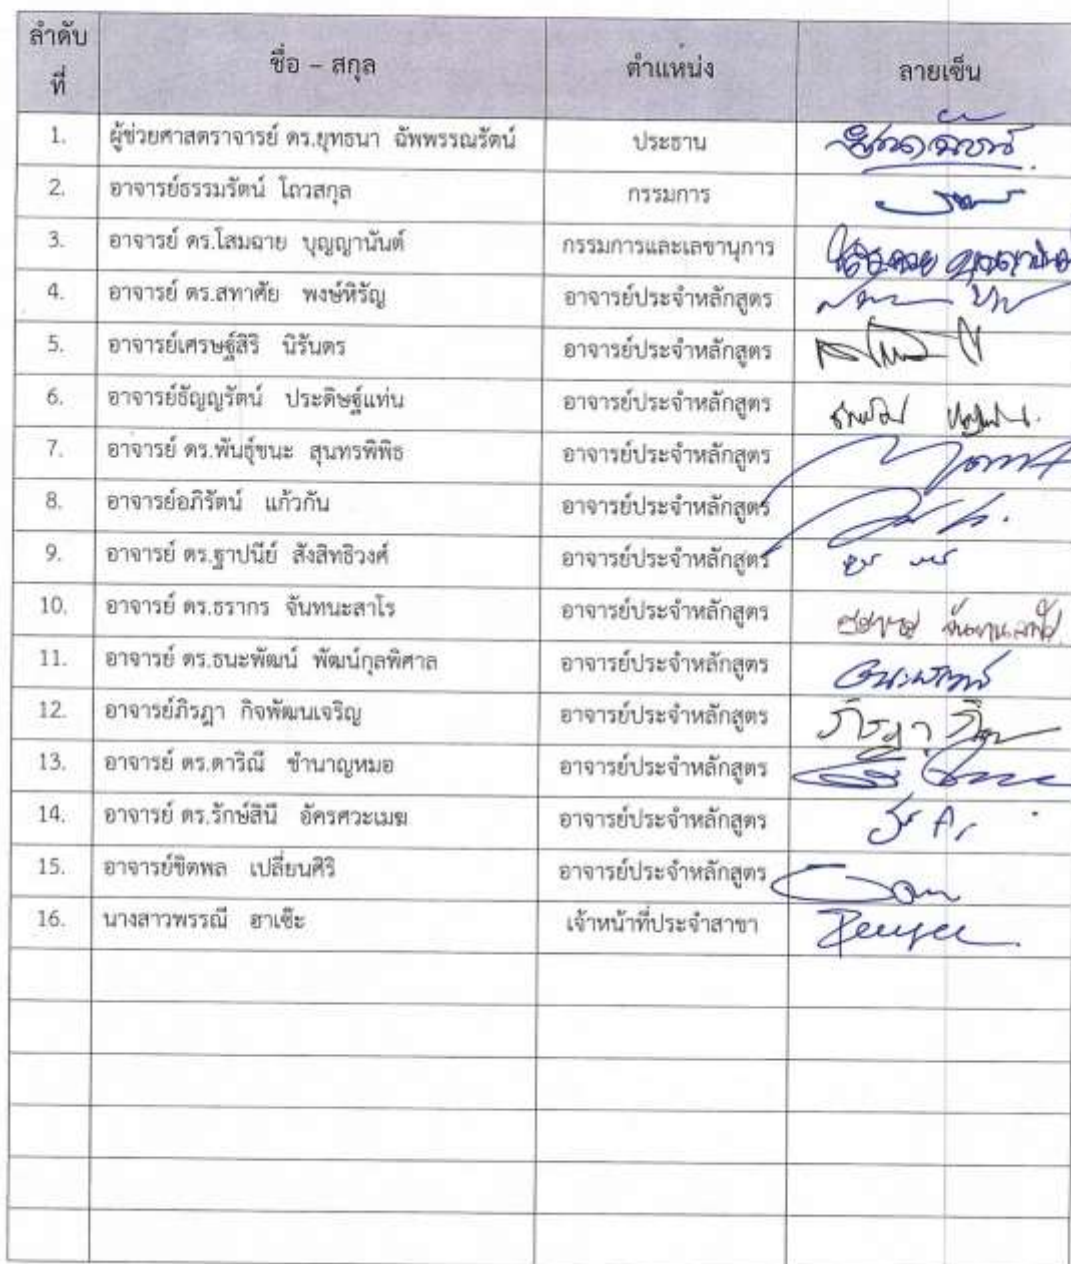 ลำดับ
ที่
ชื่อ – สกุล
ตำแหน่ง
ลายเซ็น
1. ผู้ช่วยศาสตราจารย์ ดร.ยุทธนา ฉัพพรรณรัตน์ ประธาน
2. อาจารย์ธรรมรัตน์ โถวสกุล กรรมการ
3. อาจารย์ ดร.โสมฉาย บุญญานันต์ กรรมการและเลขานุการ
4. อาจารย์ ดร.สทาศัย พงษ์หิรัญ อาจารย์ประจำหลักสูตร
5. อาจารย์เศรษฐ์สิริ นิรันดร อาจารย์ประจำหลักสูตร
6. อาจารย์ธัญญรัตน์ ประดิษฐ์แท่น อาจารย์ประจำหลักสูตร
7. อาจารย์ ดร.พันธุ์ชนะ สุนทรพิพิธ อาจารย์ประจำหลักสูตร
8. อาจารย์อภิรัตน์ แก้วกัน อาจารย์ประจำหลักสูตร
9. อาจารย์ ดร.ฐาปนีย์ สังสิทธิวงศ์ อาจารย์ประจำหลักสูตร
10. อาจารย์ ดร.ธรากร จันทนะสาโร อาจารย์ประจำหลักสูตร
11. อาจารย์ ดร.ธนะพัฒน์ พัฒน์กุลพิศาล อาจารย์ประจำหลักสูตร
12. อาจารย์ภิรฎา กิจพัฒนเจริญ อาจารย์ประจำหลักสูตร
13. อาจารย์ ดร.ดาริณี ชำนาญหมอ อาจารย์ประจำหลักสูตร
14. อาจารย์ ดร.รักษ์สินี อัครศวะเมฆ อาจารย์ประจำหลักสูตร
15. อาจารย์ชิตพล เปลี่ยนศิริ อาจารย์ประจำหลักสูตร
16. นางสาวพรรณี ฮาเซ๊ะ เจ้าหน้าที่ประจำสาขา